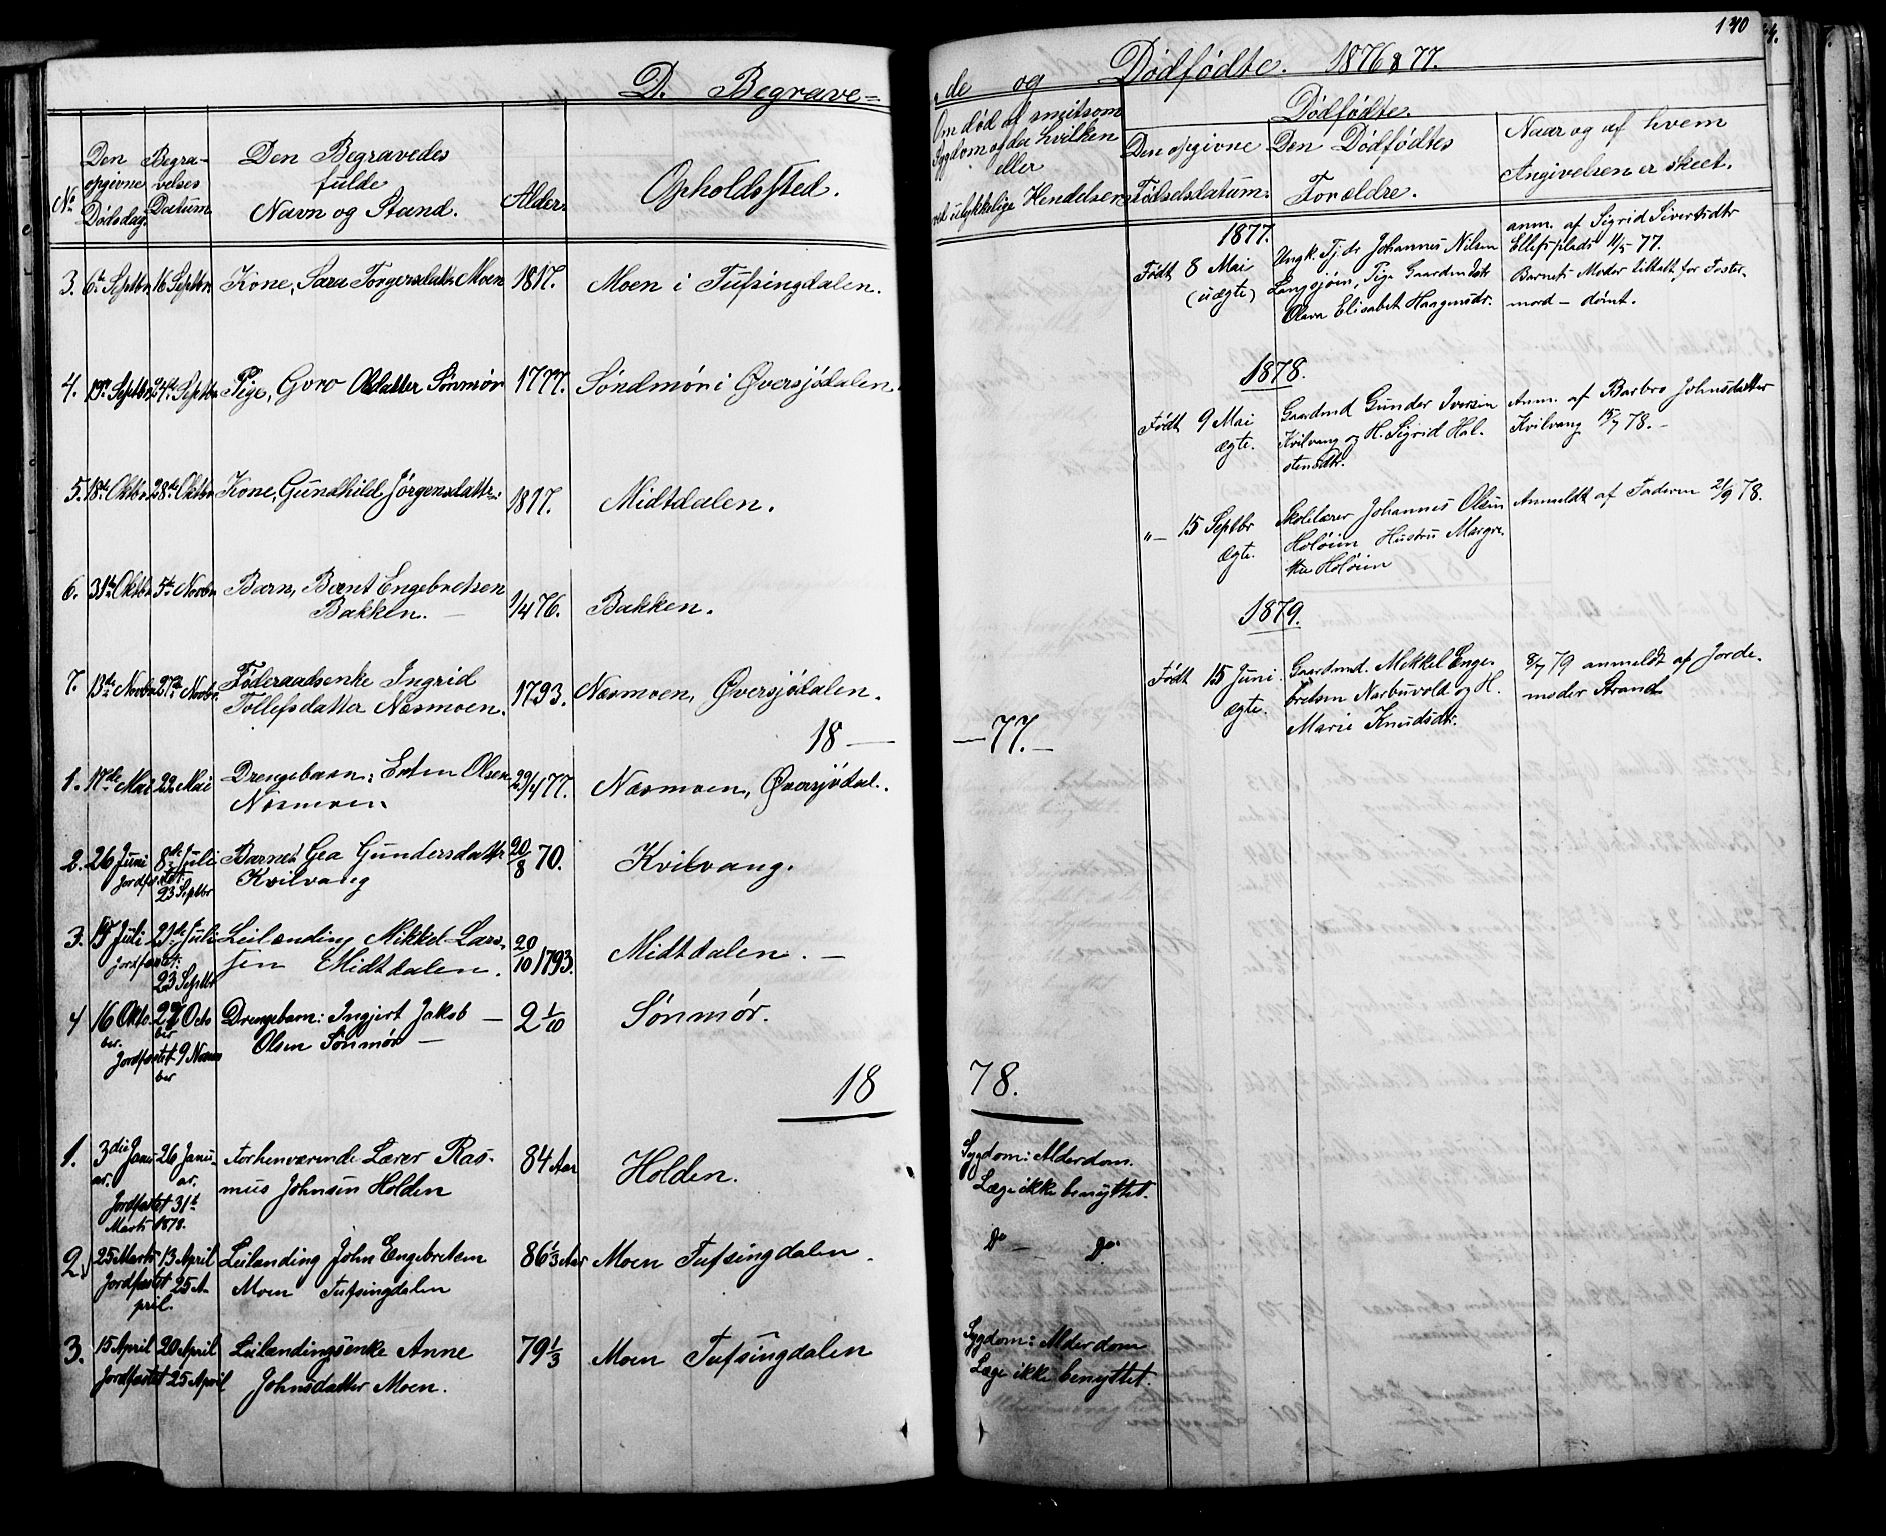 140
D. Begrave=
de og Dødfødte. 1876 & 77.
No
Den opgivne Dødsdag.
Begravelses Datum
Den Begravedes fulde Navn og Stand.
Alder.
Opholdssted.
Om død af smitsom Sygdom og da hvilken eller
ved ulykkelige Hendelser
Dødfødte.
Den opgivne Fødselsdatum.
Den Dødfødtes Forældre.
Naar og af hvem Angivelsen er skeet.
3. 6te Septbr 16 Septbr Kone, Sara Torgersdatter Moen 1817. Moen i Tufsingdalen.
4. 19de Septbr 24de Septbr Pige, Goro Olsdatter Sønmør 1777. Søndmør i Øversjødalen.
5. 18de Oktbr 28de Oktbr Kone, Gundhild Jørgensdatter. 1817. Midtdalen.
6. 31te Oktbr 5te Novbr Barn, Bærnt Engebretsen
Bakken. 1/4 76. Bakken.
7. 13de Novbr 27de Novbr. Føderaadsenke Ingrid
Tollefsdatter Næsmoen. 1793. Næsmoen, Øversjødalen.
18 — — 77. —
1. 17de Mai 29 Mai Drengebarn: Esten Olsen
Næsmoen 29/4 77. Næsmoen, Øversjødal.
2. 26 Juni 8de Juli Barnet Gea Gundersdatter
Jordfæstet: 23 Septbr Kvilvang 20/8 70. Kvilvang.
3. 15 Juli 21de Juli Leilænding Mikkel Lars-
Jordfæstet: 23 Septbr sen Midtdalen. 20/10 1793. Midtdalen. —
4 16 Oktober. 27 October Drengebarn: Ingjert Jakob —
Jordfæstet 9 November Olsen Sønmør — 2 1/10 Sønmør.
18 78.
1. 3die Januar. 26 Januar. Forhenværende Lærer Ras-
Jordfæstet 31te Marts 1878. mus Johnsen Holden 84 Aar Holden.
Sygdom: Alderdom.
Læge ikke benyttet.
2. 25 Marts 13 April Leilænding John Engebretsen
Jordfæstet 25 April. Moen Tufsingdalen 86 1/3 Aar Moen Tufsingdalen.
Do — Do.
3. 15 April 20 April Leilændingsenke Anne
Jordfæstet 25 April Johnsdatter Moen. 79 1/3 Moen Tufsingdalen
Sygdom: Alderdom
Læge ikke benyttet.
1877.
Født 8 Mai
(uægte)
Ungk. Tj.dr Johannes Nilsen
Langsjøin, Pige Gaardmdsdtr
Olava Elisabet Haagensdr.
anm. af Sigrid Sivertsdtr
Ellefsplads 11/5 77.
Barnets Moder tiltalt for Foster-
mord – dømt.
1878.
Født 9 Mai
ægte.
Gaardmd Gunder Iversen
Kvilvang og H. Sigrid Hal-
stensdtr.
Anm. af Barbro Johnsdatter
Kvilvang 15/7 78. –
"— 15 Septbr
Ægte.
Skolelærer Johannes Olsen
Holøien Hustru Margre-
the Holøien
Anmeldt af Faderen 21/9 78.
1879.
Født 15 Juni.
ægte.
Gaardmd. Mekkel Enge-
bretsen Narbuvold og H.
Marie Knudsdtr.
8/7 79 anmeldt af Jorde-
moder Strand